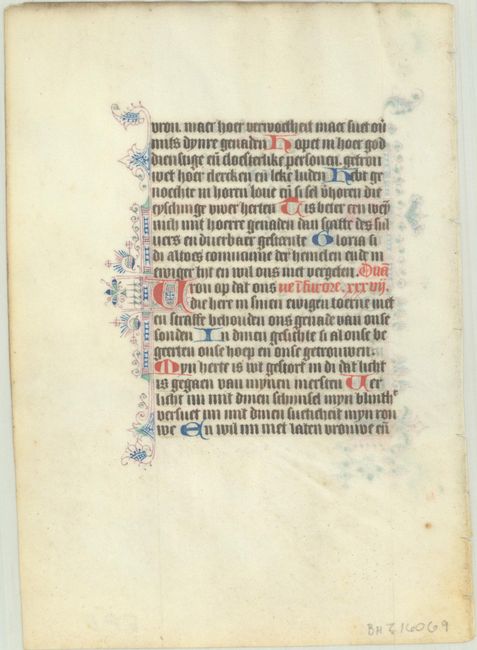 vron. maer hoer vervoetheit maer siet oñ
mits dynre genaden Hopet in hoer god
dienstige eñ cloesterlike personen. getrou
wet hoer clercken eñ leke luden Hebt ge
noechte in horen loue eñ si sel v̄horen die
eyschinge uwer herten Tis beter een wey
nich mit hoerre genaden dan scatte des sil
uers en duerbaer gesteente Gloria si
di altoes coninginne der hemelen ende in
ewiger tijt en wil ons niet vergeten. Quā
Vrou op dat ons ne ī furore. xxxvij.
die here in sinen ewigen toerne niet
en straffe behouden ons genade van onse
sonden In dinen gesichte si al onse be
geerten onse hoep en onse getrouwen.
Myn herte is wt gestort in di dat licht
is gegaen van mynen mersten Ver
licht mi mit dinen schinsel myn blinth
versuet mi mit dinen sueticheit myn rou
we En wil mi niet laten vrouwe eñ
BH Z16069